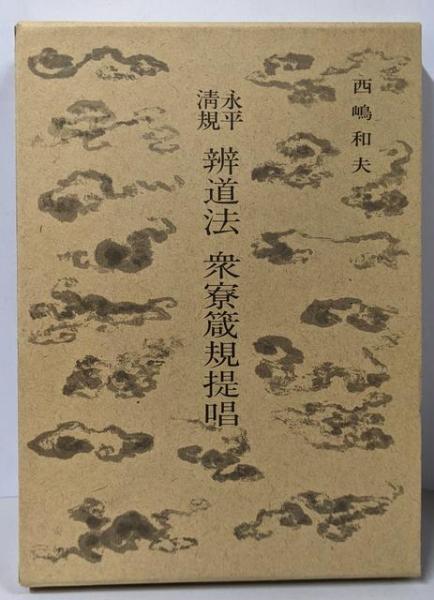 西嶋和夫
永平
清規
辨道法 衆寮箴規提唱